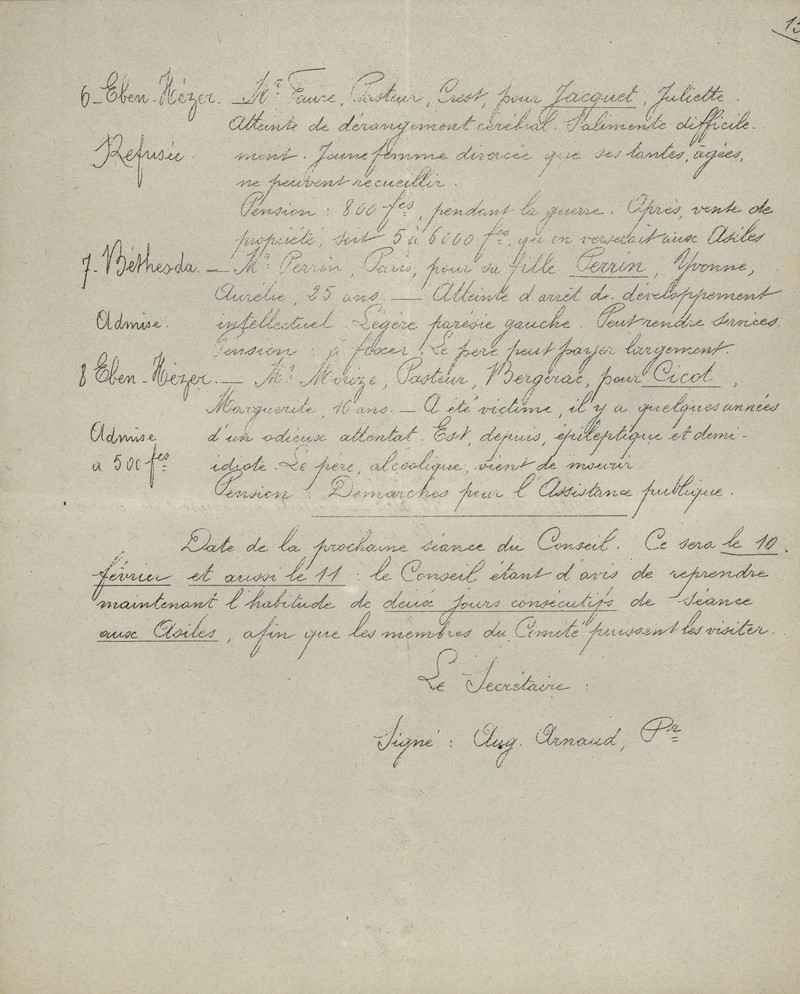 6_ Eben-Hézer. _ Mr Faure, Pasteur, Crest, pour Jacquet, Juliette.
Atteinte de dérangement cérébral. S'alimente difficile-
Refusée. ment. Jeune femme divorcée que ses tantes, âgées,
ne peuvent recueillir.
Pension : 800 fcs, pendant la guerre. Après, vente de
propriété, soit 5 à 6000 fcs, qu'on verserait aux Asiles
7_ Béthesda. _ Mr Perrin, Paris, pour sa fille Perrin, Yvonne,
Aurélie, 25 ans. _ Atteinte d'arrêt de développement
Admise. intellectuel. Légère parésie gauche. Peut rendre services.
Pension : à fixer. Le père peut payer largement.
8 Eben-Hézer. _ Mr Morize, Pasteur, Bergerac, pour Cicot,
Marguerite, 16 ans. _ A été victime, il y a quelques années
Admise d'un odieux attentat. Est, depuis, épileptique et demi-
à 500 fcs idiote. Le père, alcoolique, vient de mourir.
Pension : Démarches pour l'Assistance publique.
Date de la prochaine séance du Conseil. Ce sera le 10
février et aussi le 11 : le Conseil étant d'avis de reprendre
maintenant l'habitude de deux jours consécutifs de séance
aux Asiles, afin que les membres du Comité puissent les visiter.
Le Secrétaire :
Signé : Aug. Arnaud, Pr